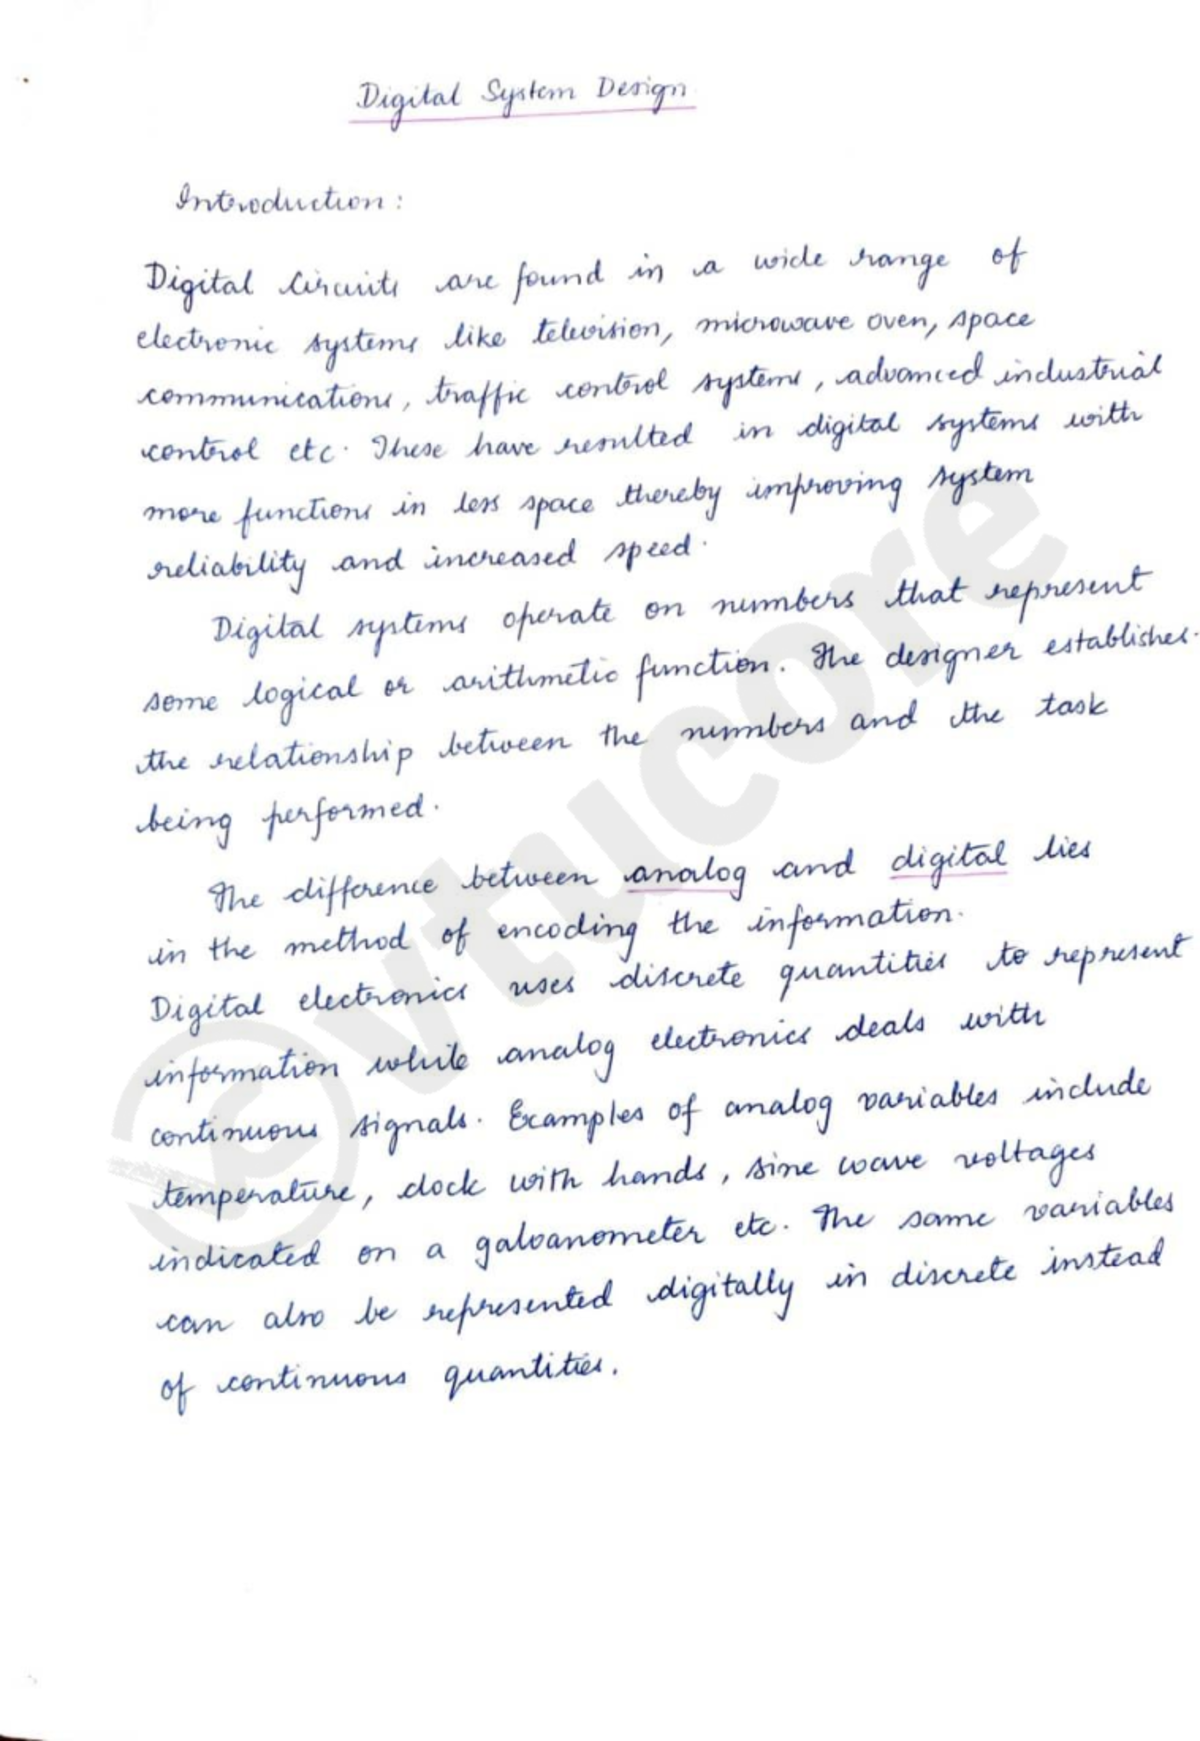 Digital System Design
Introduction:
Digital Circuits are found in a wide range of
electronic systems like television, microwave oven, space
communications, traffic control systems, advanced industrial
control etc. These have resulted in digital systems with
more functions in less space thereby improving system
reliability and increased speed.
Digital systems operate on numbers that represent
some logical or arithmetic function. The designer establishes
the relationship between the numbers and the task
being performed.
The difference between analog and digital lies
in the method of encoding the information.
Digital electronics uses discrete quantities to represent
information while analog electronics deals with
continuous signals. Examples of analog variables include
temperature, clock with hands, sine wave voltages
indicated on a galvanometer etc. The same variables
can also be represented digitally in discrete instead
of continuous quantities.
vtucore